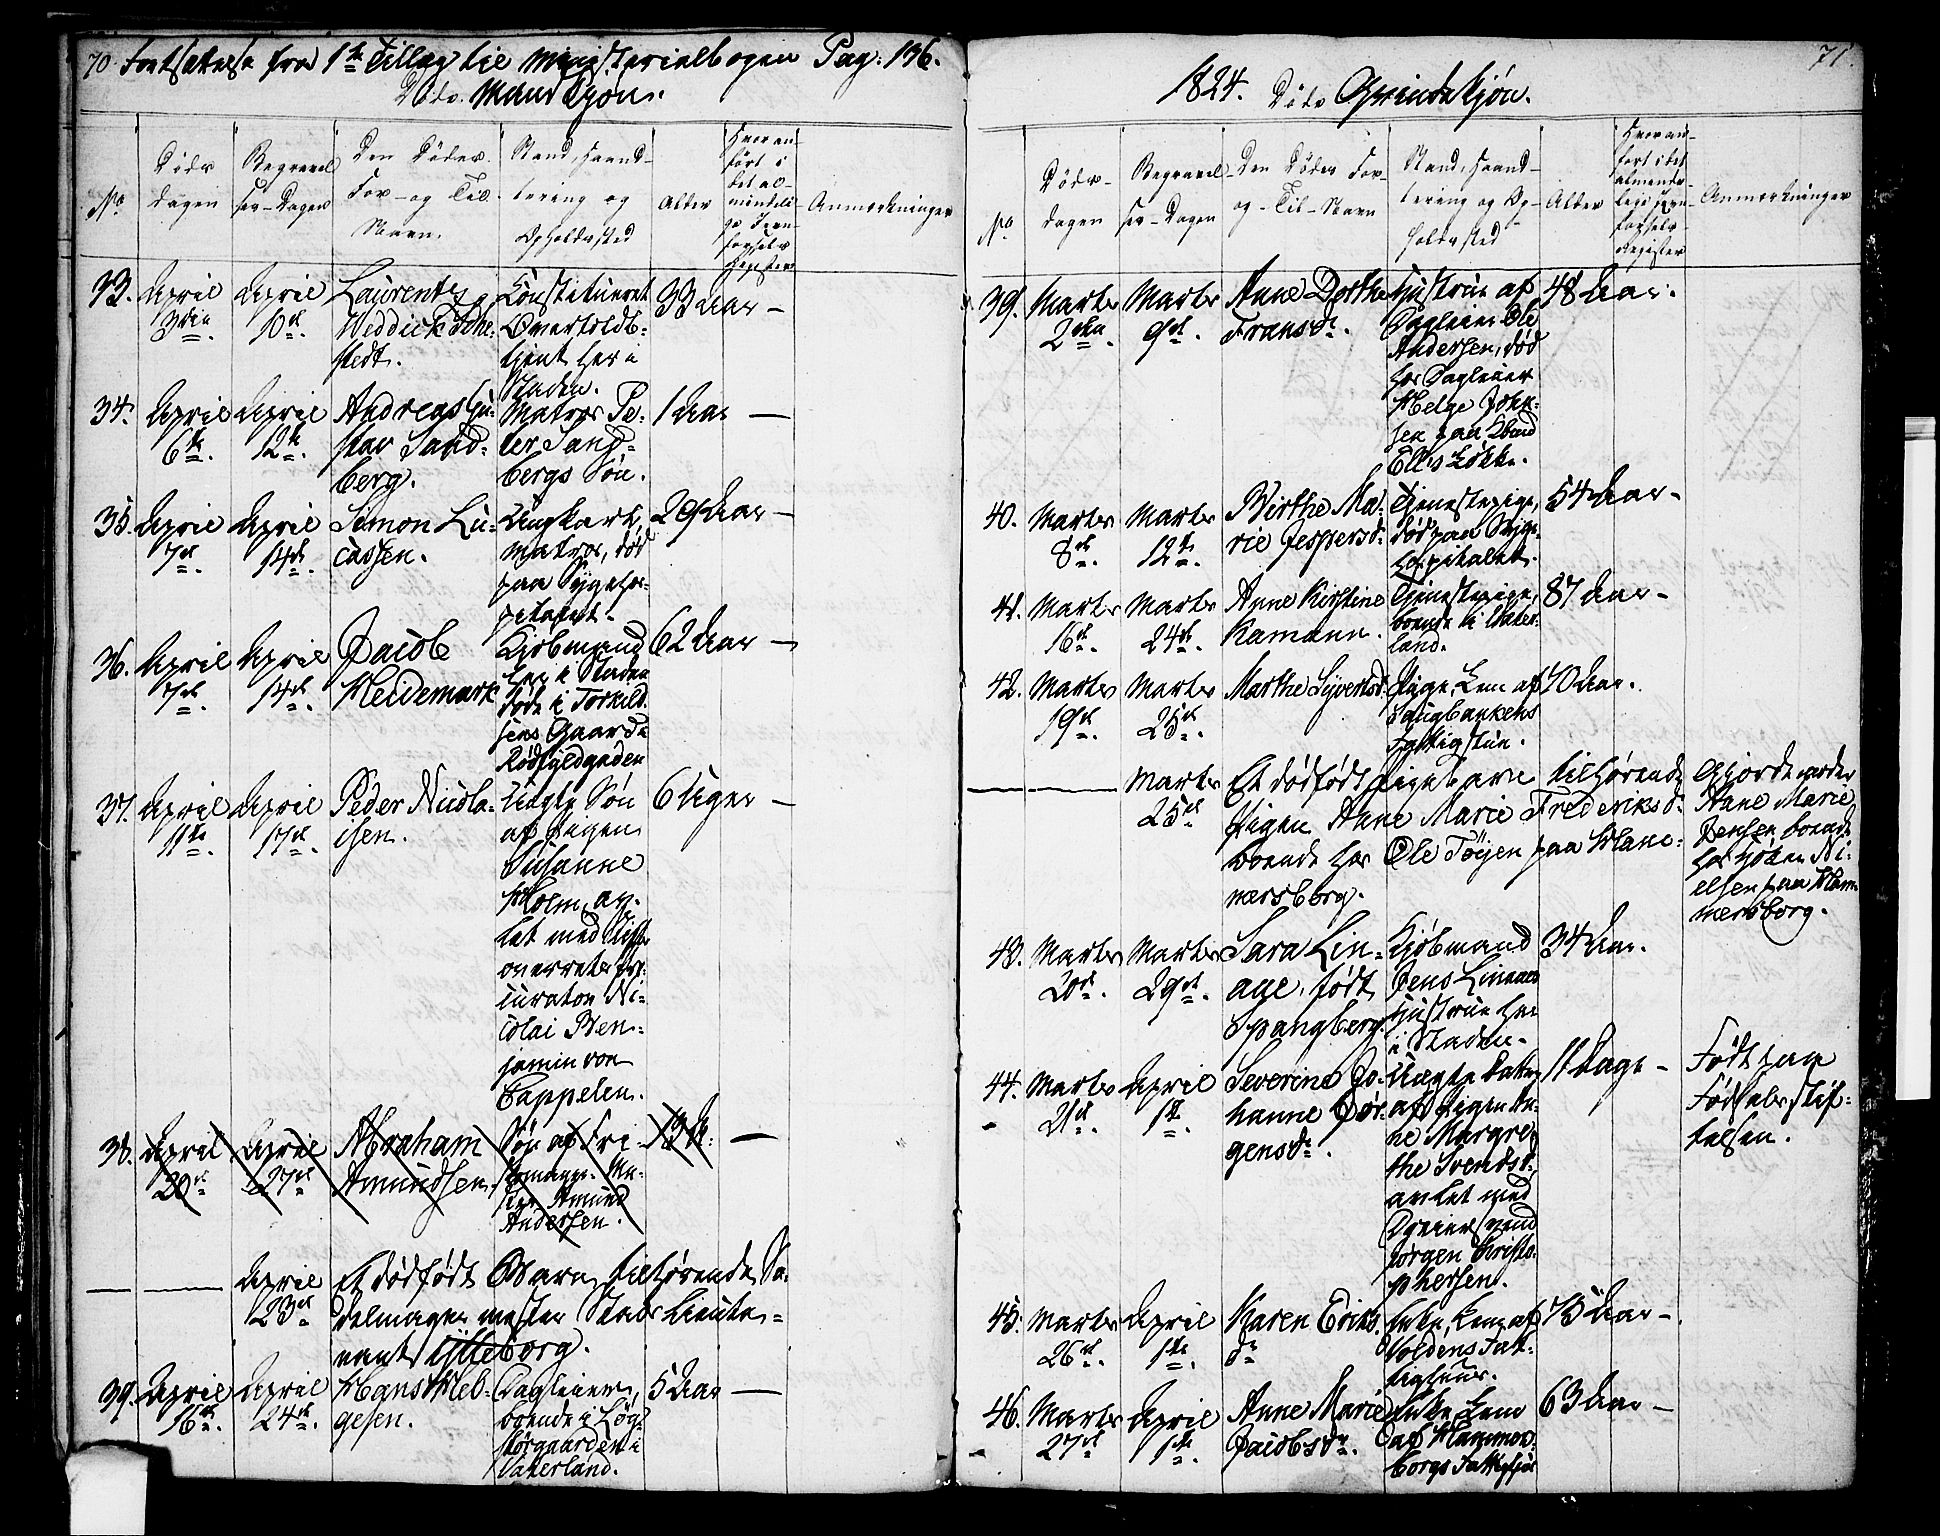 70. Fortsættelse fra 1te Tillæg til Ministerialbogen Pag: 136.
Døde Mandkjøn.
No
Døds-
dagen
Begravel-
ses-Dagen
Den Dødes
For- og Til-
Navn.
Stand, Haand-
tering og
Opholdssted
Alder
Hvor an-
ført i
det al-
mindeli-
ge Jevn-
førsels-
Register
Anmærkninger
33. April
3die
April
10de
Laurents
Weddick
stedt.
Constitueret
Overtoldb-
tjent her i
Staden.
33 Aar -
34. April
6te
April
12te
Andreas Gu-
stav Sand-
berg.
Matros Pe-
ter Sand-
bergs Søn.
1 Aar -
35. April
7de
April
14de
Simon Lu-
cassen.
Ungkarl,
Matros, død
paa Sygeho-
pitalet.
29 Aar -
36. April
7de
April
14de
Jacob
Heidemark
Kjøbmand
her i Staden
døde i Torkild-
sens Gaard i
Rødfyldgaden
62 Aar -
37. April
11te
April
17de
Peder Nicola-
isen.
Uægte Søn
af Pigen
Susanne
Holm, av-
let med
overrets Pro-
curator Ni-
colai Ben-
jamin von
Cappelen.
6 Uger -
38. April
20de
April
27de
Abraham
Amundsen.
Søn af
Amund
Andersen.
13 A. -
April
23de
Et dødfødt Barn, tilhørende Sa-
delmager mester Stads Lieute-
nant Ytteborg.
39. April
16de
April
24de
Hans Hel-
gesen.
Dagleier,
boende i Løg-
størgaarden i
Vaterland.
5 Aar -
71.
1824. Døde Qvindekjøn.
No
Døds-
dagen
Begravel-
ses-Dagen
Den Dødes For-
og-Til-Navn
Stand, Haand-
tering og Op-
holdssted
Alder
Hvor an-
ført i det
alminde-
lige Jevn-
førsels-
Register
Anmærkninger
39. Marts
2den
Marts
9de
Anne Dorthe
Fransdr.
Hustrue af
Dagleier Ole
Andersen, død
hos Dagleier
Helge John-
sen paa
Ellis Løkke.
48 Aar.
40. Marts
8de
Marts
12te
Birthe Ma-
rie Jespersdr.
Tjenestepige,
død paa Syge-
hospitalet.
54 Aar -
41. Marts
16de
Marts
24de
Anne Kirstine
Kamann.
Tjenestepige,
boende i Vater-
land.
87 Aar -
42. Marts
19de
Marts
25de
Marthe Syvertsdr.
Pige, Lem af
Saugbankens
Fattigstue.
70 Aar.
Marts
25de
Et dødfødt Pigebarn tilhørende
Pigen Anne Marie Frederiksdr.
boende hos Ole Tøyen paa Ham-
mersborg.
Gjordemoder
Anne Marie
Jensen boende
hos Ni-
elsen paa Ham-
mersborg.
43. Marts
20de
Marts
29de
Sara Lin-
aae, født
Spangberg.
Kjøbmand
Jens Linaaes
Hustrue her
i Staden.
34 Aar.
44. Marts
21de
April
1te
Severine Jo-
hanne Jør-
gensdr.
Uægte Datter
af Pigen An-
ne Margre-
the Svendsdr.
avlet med
Dreiersvend
Jørgen Christo-
phersen.
11 Dage -
Født paa
Fødselsstif-
telsen.
45. Marts
26de
April
1te
Karen Eriks-
dr
Enke, Lem af
Voldens Fat-
tighuus.
75 Aar -
46. Marts
27de
April
1te
Anne Marie
Jacobsdr.
Enke, Lem
af Hammers-
borgs Fattighuus
63 Aar -